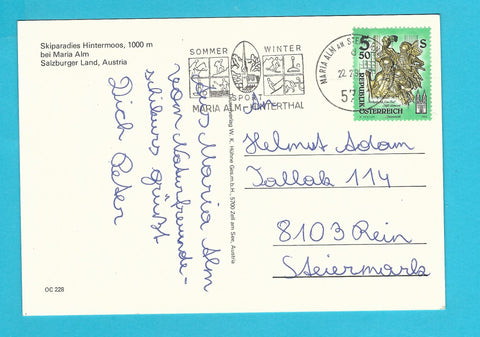 Skiparadies Hintermoos, 1000 m
bei Maria Alm
Salzburger Land, Austria
SOMMER WINTER
SPORT
MARIA ALM-HINTERTHAL
MARIA ALM AM
22.
57
5 S
50
REPUBLIK
ÖSTERREICH
Aus Maria Alm
vom Naturfreunde-
schikurs grüßt
Dich Peter
verlag W. K. Hühne Ges.m.b.H., 5700 Zell am See, Austria
An
Helmut Adam
Tallak 114
8103 Rein
Steiermark
OC 228